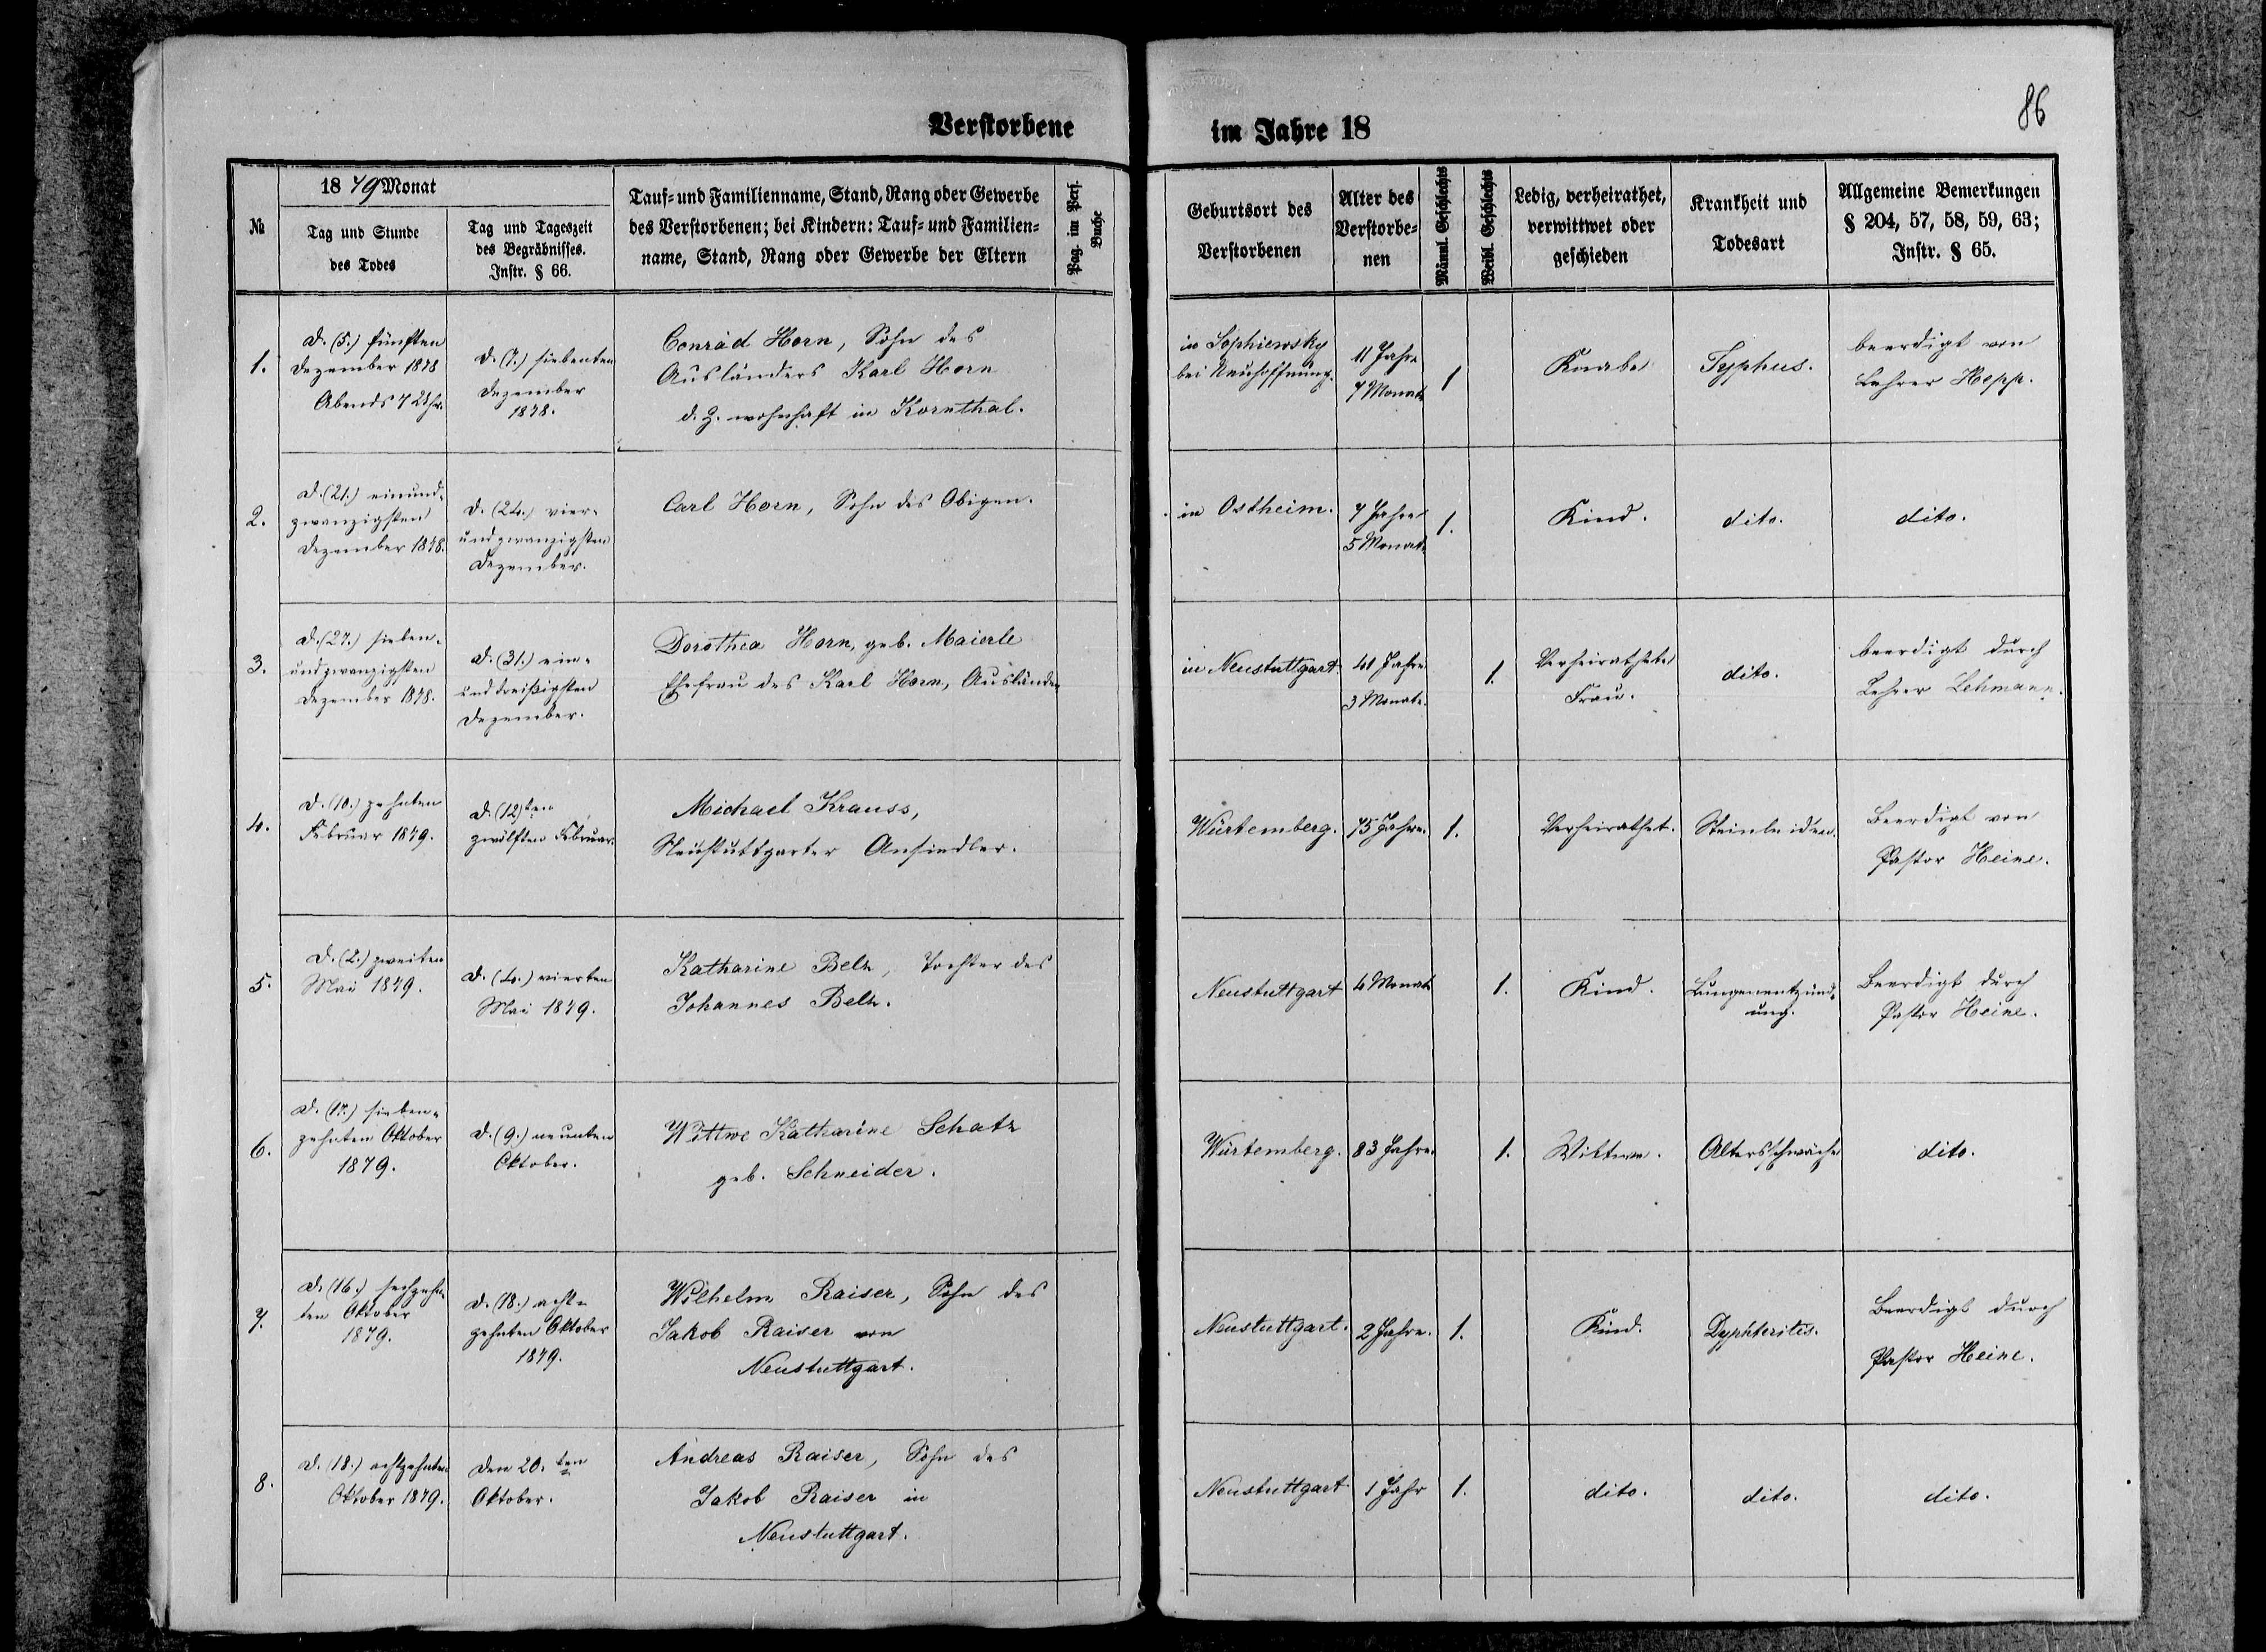 Verstorbene
im Jahre 18
86
№
1879 Monat
Tag und Stunde
des Todes
Tag und Tageszeit
des Begräbnisses.
Instr. § 66.
Tauf- und Familienname, Stand, Rang oder Gewerbe
des Verstorbenen; bei Kindern: Tauf- und Familien-
name, Stand, Rang oder Gewerbe der Eltern
Pag. im Pers.
Buche
Geburtsort des
Verstorbenen
Alter des
Verstorbe-
nen
Männl. Geschlechts
Weibl. Geschlechts
Ledig, verheirathet,
verwittwet oder
geschieden
Krankheit und
Todesart
Allgemeine Bemerkungen
§ 204, 57, 58, 59, 63;
Instr. § 65.
1.
d. (5.) fünften
Dezember 1878
Abends 7 Uhr.
d. (7.) siebenten
Dezember
1878.
Conrad Horn, Sohn des
Ausländers Karl Horn
d. Z. wohnhaft in Kornthal.
in Sophiewsky
bei Neuhoffnung.
11 Jahre
7 Monate
1
Knabe
Typhus.
beerdigt von
Lehrer Hepp.
2.
d. (21.) einund-
zwanzigsten
Dezember 1878.
d. (24.) vier-
undzwanzigsten
Dezember.
Carl Horn, Sohn des Obigen.
in Ostheim.
7 Jahre
5 Monate
1.
Kind.
dito.
dito.
3.
d. (27.) sieben-
undzwanzigsten
Dezember 1878.
d. (31.) ein-
unddreißigsten
Dezember.
Dorothea Horn, geb. Maierle
Ehefrau des Karl Horn, Ausländer
in Neustuttgart.
41 Jahre
3 Monate.
1.
Verheirathete
Frau.
dito.
beerdigt durch
Lehrer Lehmann.
4.
d. (10.) zehnten
Februar 1879.
d. (12) ten
zwölften Februar.
Michael Krauss,
Neustuttgarter Ansiedler.
Würtemberg.
75 Jahre.
1.
Verheirathet.
Steinleiden.
Beerdigt von
Pastor Heine.
5.
d. (2.) zweiten
Mai 1879.
d. (4.) vierten
Mai 1879.
Katharine Belz, Tochter des
Johannes Belz.
Neustuttgart
4 Monate
1.
Kind.
Lungenentzünd-
ung.
Beerdigt durch
Pastor Heine.
6.
d. (17.) sieben-
zehnten Oktober
1879.
d. (9.) neunten
Oktober.
Wittwe Katharine Schatz
geb. Schneider.
Würtemberg.
83 Jahre.
1.
Wittwe.
Altersschwäche
dito.
7.
d. (16.) sechzehn-
ten Oktober
1879.
d. (18.) acht-
zehnten Oktober
1879.
Wilhelm Raiser, Sohn des
Jakob Raiser von
Neustuttgart.
Neustuttgart.
2 Jahre.
1.
Kind.
Dyphteritis.
Beerdigt durch
Pastor Heine.
8.
d. (18.) achtzehnten
Oktober 1879.
Den 20. ten
Oktober.
Andreas Raiser, Sohn des
Jakob Raiser in
Neustuttgart.
Neustuttgart
1 Jahr
1.
dito.
dito.
dito.